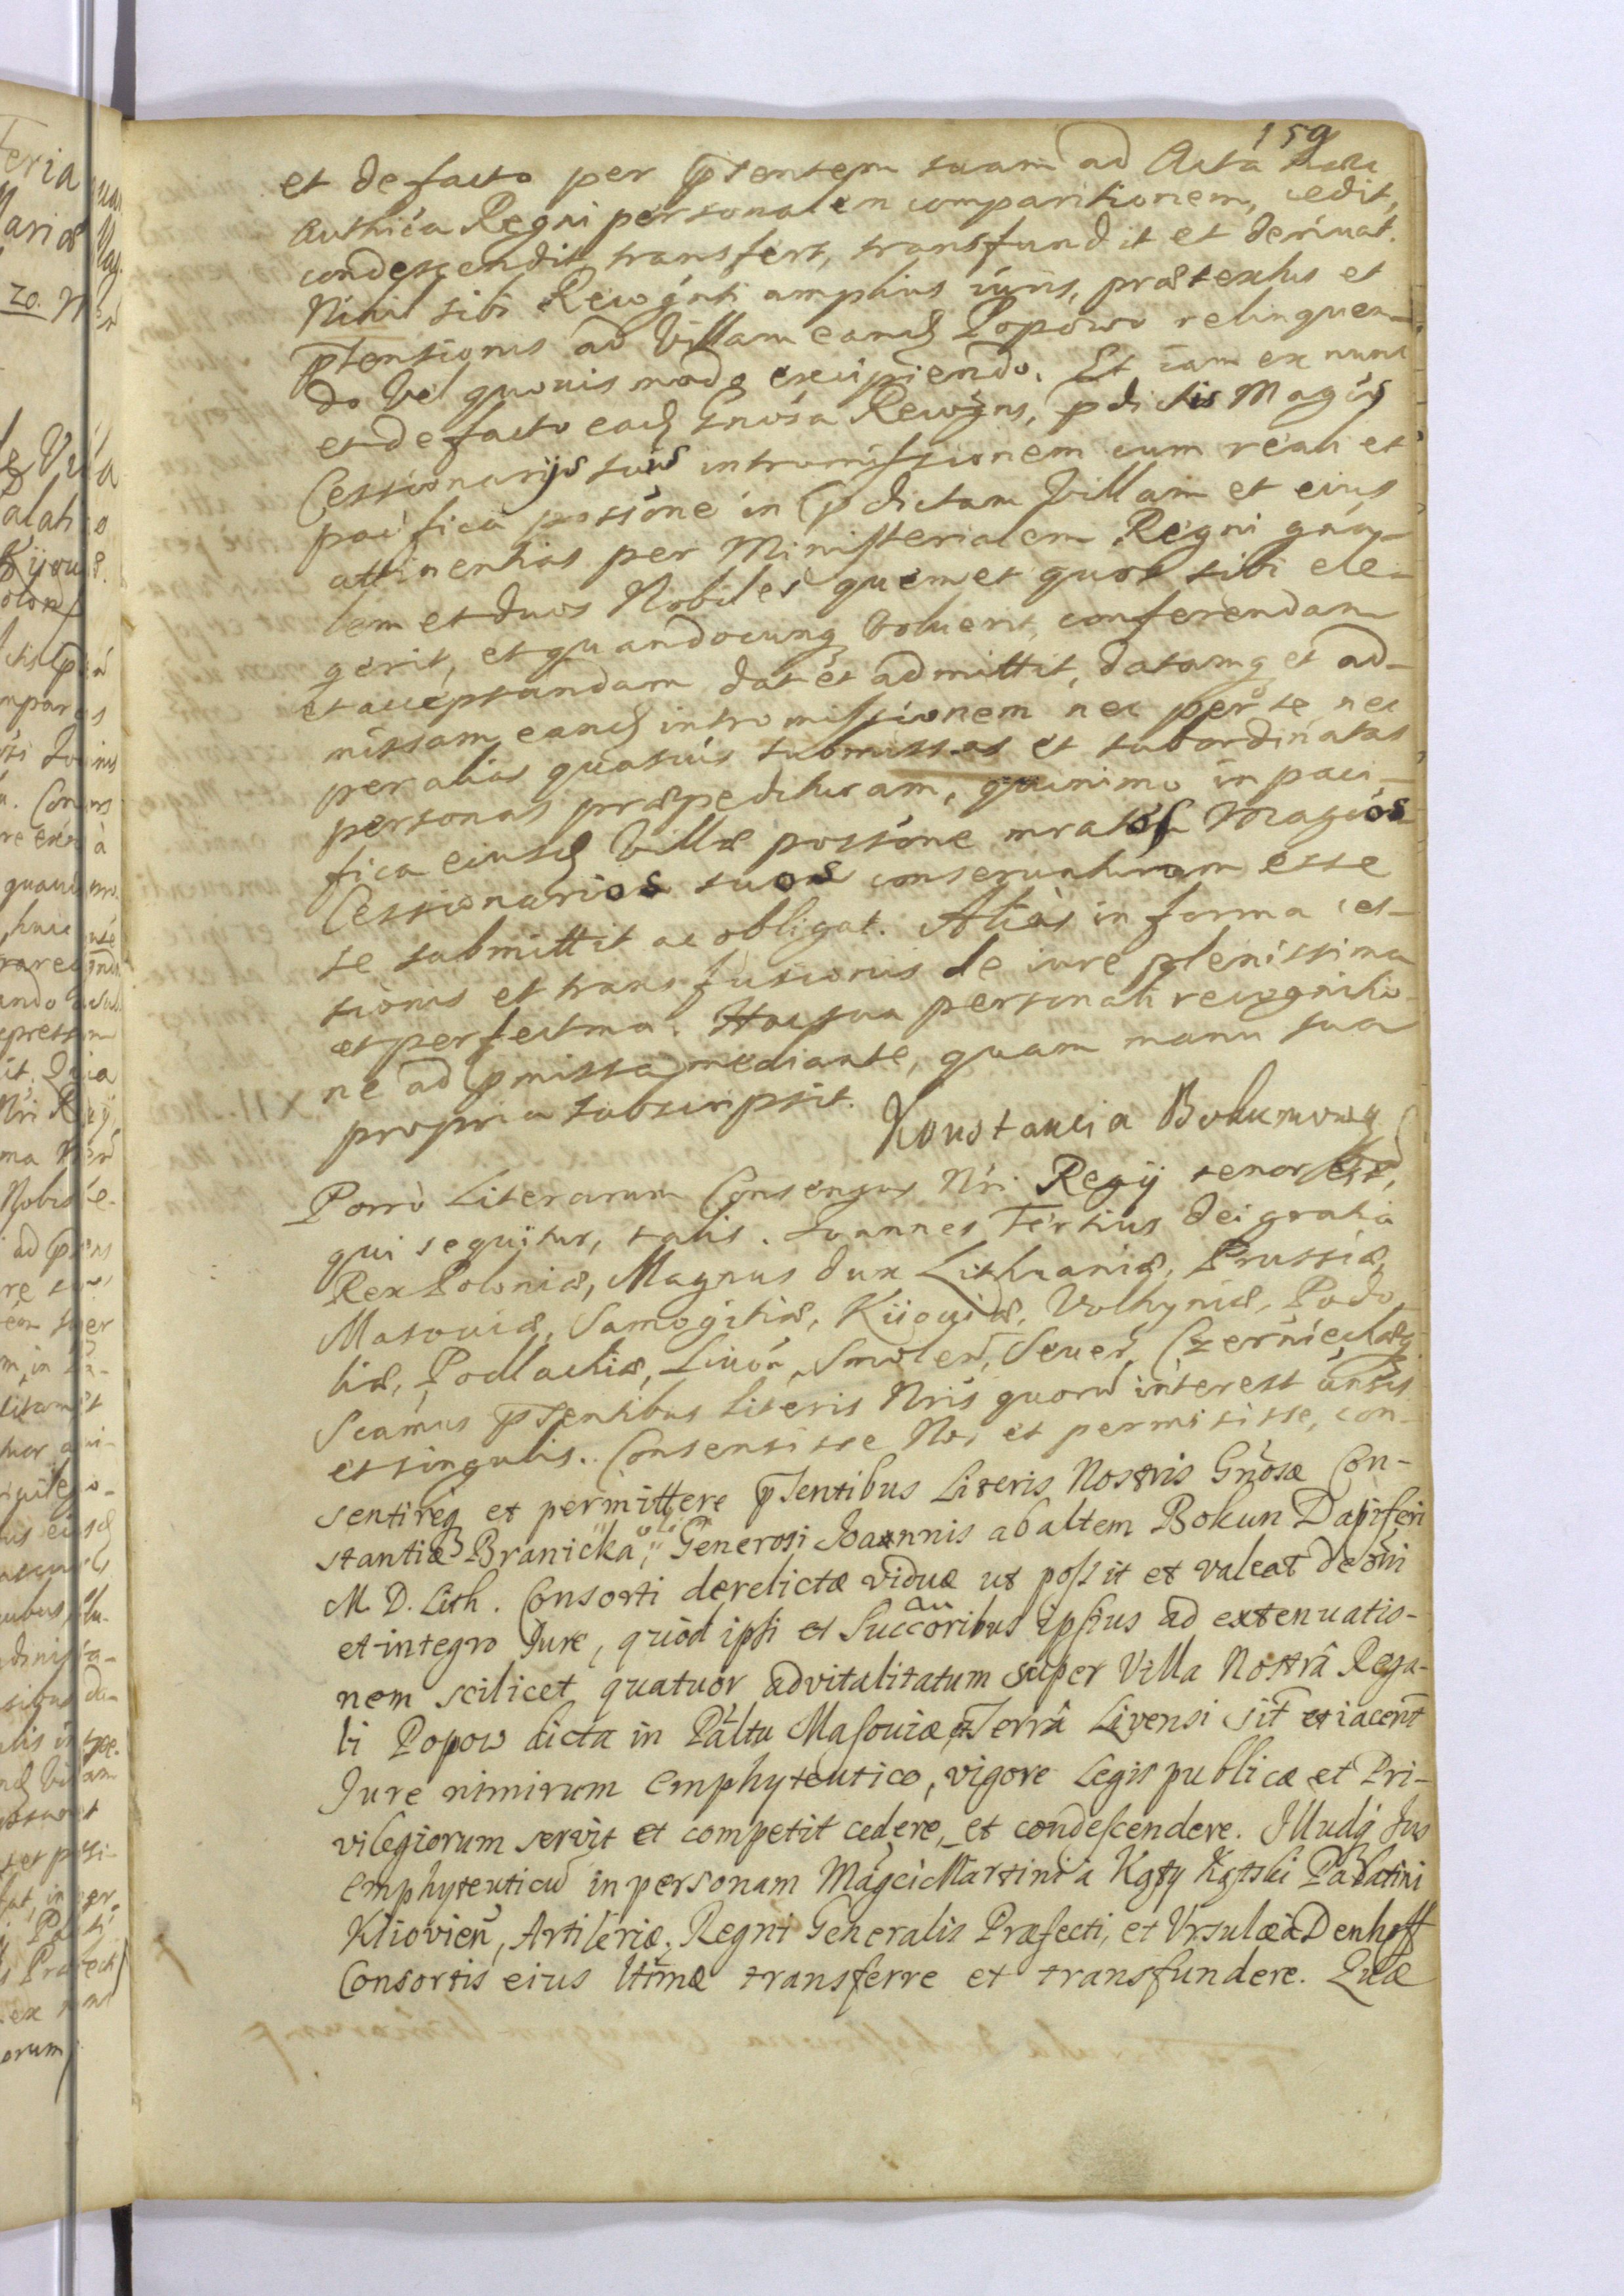 159
et de facto per pntentem suam ad Acta
Authica Regni personalem comparitionem, cedit,
condescendit, transfert, transfundit et deriuat.
Nihil sibi Recognti amplius iuris, prætextus et
ptensionis ad Villam eand Popowo relinquen-
do vel quouis modo excipiendo. Et iam ex nunc
et de facto ead Gnosa Recogns, pdictis Magcis
Cessionarijs suis intromissionem cum reali et
pacifica possone in pdictam Villam et eius
attinentias per Ministerialem Regni gna-
lem et duos Nobiles quem et quos sibi ele-
gerit, et quandocunq voluerit, conferendam
et acceptandam dat et admittit, datamq et ad-
missam eand intromissionem nec per se nec
per alias quasuis submissas et subordinatas
personas præpedituram, quinimo in paci-
fica eiusd Villæ possone mratos Magcos
Cessionarios suos conseruaturam esse
se submittit ac obligat. Aliàs in forma ces-
sionis et transfusionis de iure plenissima
et perfectma. Hac sua personali recognitio-
ne ad pmissa mediante, quam manu sua
propria subscripsit.
Konstancia Bokumowa
Porrò Literarum Consensus Nri Regij tenor est,
qui sequitur, talis. Ioannes Tertius Dei gratia
Rex Poloniæ, Magnus Dux Lithuaniæ, Prussiæ,
Masouiæ, Samogitiæ, Kijouiæ, Volhyniæ, Podo-
liæ, Podlachiæ, Liuon, Smolen, Seuer, Czerniechouq
Scamus pntentibus literis Nris quoru interest unsis
et singulis. Consensisse Nos et permisisse, con-
sentireq et permittere pntentibus Literis Nostris Gnosæ Con-
stantiæ Branicka, Generosi Joannis ab altem Bokun Dapiferi
M. D. Lith. Consorti derelictæ viduæ ut possit et valeat de oni
et integro Jure, quod ipsi et Succoribus ipsius ad extenuatio-
nem scilicet quatuor advitalitatum super Villa Nostrâ Rega-
li Popow dicta in Paltu Masouiæ et Terrâ Livensi sit et iacent
Jure nimirum Emphyteutico, vigore Legis publicæ et Pri-
vilegiorum servit et competit cedere, et condescendere. Illudq Jus
Emphyteuticu in personam Magci Martini à Kąty Kątski Palatini
Kiiovien, Artileriæ Regni Generalis Præfecti, et Vrsulæ à Denhoff
Consortis eius Utmæ transferre et transfundere. Quæ